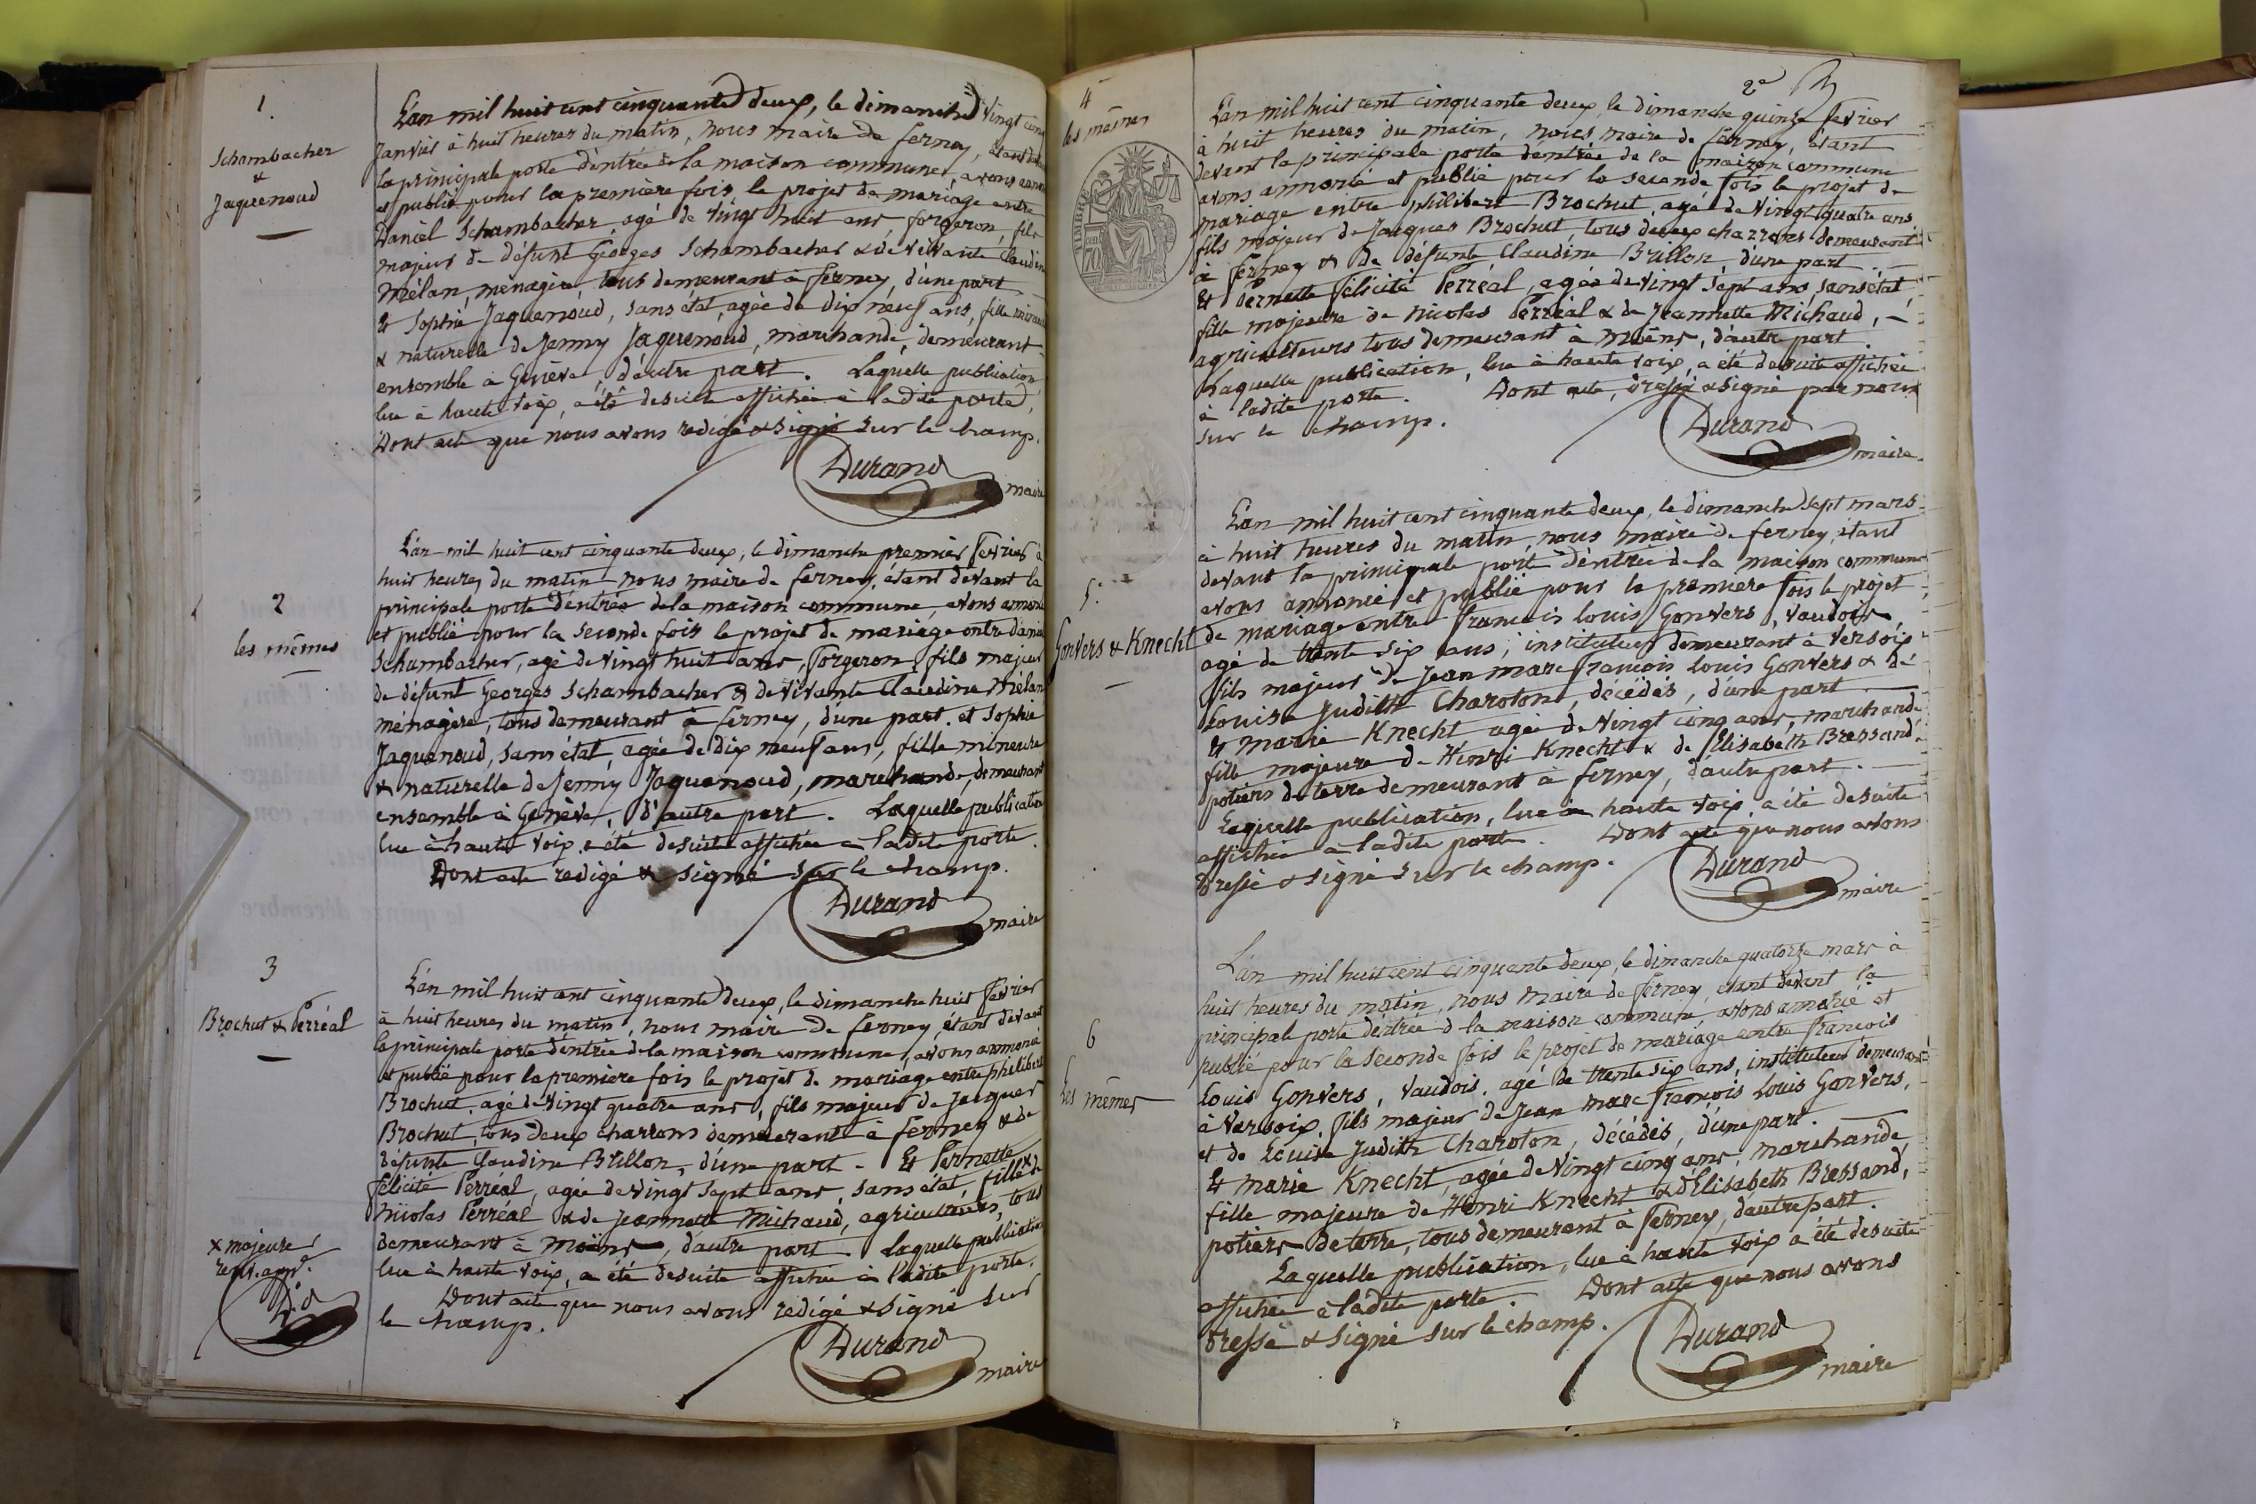 1.
Schambacher
&
Jaquenoud
L'an mil huit cent cinquante deux, le dimanche vingt cinq
Janvier à huit heures du matin, nous maire de ferney, étant devant
la principale porte d'entrée de la maison commune, avons annoncé
et publié pour la première fois le projet de mariage entre
Daniel Schambacher, agé de vingt huit ans, forgeron, fils
majeur de défunt Georges Schambacher & de vivante Claudine
Mélan, ménagère, tous demeurant à ferney, d'une part
& Sophie Jaquenoud, sans état, agée de dix neuf ans, fille mineure
& naturelle de Jenny Jaquenoud, marchande, demeurant
ensemble à Genève, d'autre part. Laquelle publication
lue à haute voix, a été desuite affichée à ladite porte,
Dont acte que nous avons redigé & signé sur le champ.
Durand
maire
2
les mêmes
L'an mil huit cent cinquante deux, le dimanche premier fevrier à
huit heures du matin nous maire de ferney, étant devant la
principale porte d'entrée de la maison commune, avons annoncé
et publié pour la seconde fois le projet de mariage entre daniel
Schambacher, agé de vingt huit ans, forgeron, fils majeur
de défunt Georges Schambacher & de vivante Claudine Mélan
ménagère, tous demeurant à ferney, d'une part. et Sophie
Jaquenoud, sans état, agée de dix neuf ans, fille mineure
& naturelle de Jenny Jaquenoud, marchande, demeurant
ensemble à Genève, d'autre part. Laquelle publication
lue à haute voix, a été desuite affichée à ladite porte.
Dont acte redigé & signé sur le champ.
Durand
maire
3
Brochut & Perréal
L'an mil huit cent cinquante deux, le dimanche huit fevrier
à huit heures du matin, nous maire de ferney, étant devant
la principale porte d'entrée de la maison commune, avons annoncé
et publié pour la première fois le projet de mariage entre philibert
Brochut, agé de vingt quatre ans, fils majeur de Jacques
Brochut, tous deux charrons demeurant à ferney & de
défunte Claudine Brillon, d'une part. Et Pernette
félicité Perréal, agée de vingt sept ans, sans état, fille x de
Nicolas Perréal & de Jeannette Michaud, agriculteurs, tous
demeurant à Moëns, d'autre part. Laquelle publication
lue à haute voix, a été desuite affichée à ladite porte.
Dont acte que nous avons redigé & signé sur
le champ.
Durand
maire
x majeure
renv. appr.
D.d
2e
4
les mêmes
TIMBRE
70
L'an mil huit cent cinquante deux, le dimanche quinze fevrier
à huit heures du matin, nous maire de ferney, étant
devant la principale porte d'entrée de la maison commune
avons annoncé et publié pour la seconde fois le projet de
mariage entre philibert Brochut, agé de vingt quatre ans
fils majeur de Jacques Brochut, tous deux charrons demeurant
à ferney & de défunte Claudine Brillon, d'une part
& Pernette félicité Perréal, agée de vingt sept ans, sans état
fille majeure de Nicolas Perréal & de Jeannette Michaud,
agriculteurs tous demeurant à Moëns, d'autre part.
Laquelle publication, lue à haute voix, a été desuite affichée
à ladite porte. Dont acte, dressé & signé par nous
sur le champ.
Durand
maire.
5.
Gonvers & Knecht
L'an mil huit cent cinquante deux, le dimanche sept mars
à huit heures du matin, nous maire de ferney, étant
devant la principale porte d'entrée de la maison commune
avons annoncé et publié pour la premiere fois le projet
de mariage entre francois louis Gonvers, vaudois,
agé de trente six ans, instituteur demeurant à Versoix
fils majeur de Jean marc françois louis Gonvers & de
Louise Judith Charoton, décédés, d'une part
& marie Knecht agée de vingt cinq ans, marchande
fille majeure de Henri Knecht & de Elisabeth Bressand,
potiers de terre demeurant à ferney, d'autre part.
Laquelle publication, lue à haute voix, a été desuite
affichée à ladite porte. Dont acte que nous avons
dressé & signé sur le champ.
Durand
maire
6
Les mêmes
L'an mil huit cent cinquante deux, le dimanche quatorze mars à
huit heures du matin, nous maire de ferney, étant devant la
principale porte d'entrée de la maison commune, avons annoncé et
publié pour la seconde fois le projet de mariage entre françois
Louis Gonvers, vaudois, agé de trente six ans, instituteur demeurant
à Versoix, fils majeur de Jean marc françois Louis Gonvers,
et de Louise Judith Charoton, décédés, d'une part.
& marie Knecht, agée de vingt cinq ans, marchande,
fille majeure de Henri Knecht & d'Elisabeth Bressand,
potiers de terre, tous demeurant à ferney, d'autre part.
Laquelle publication, lue à haute voix a été desuite
affichée à ladite porte. Dont acte que nous avons
dressé & signé sur le champ.
Durand
maire